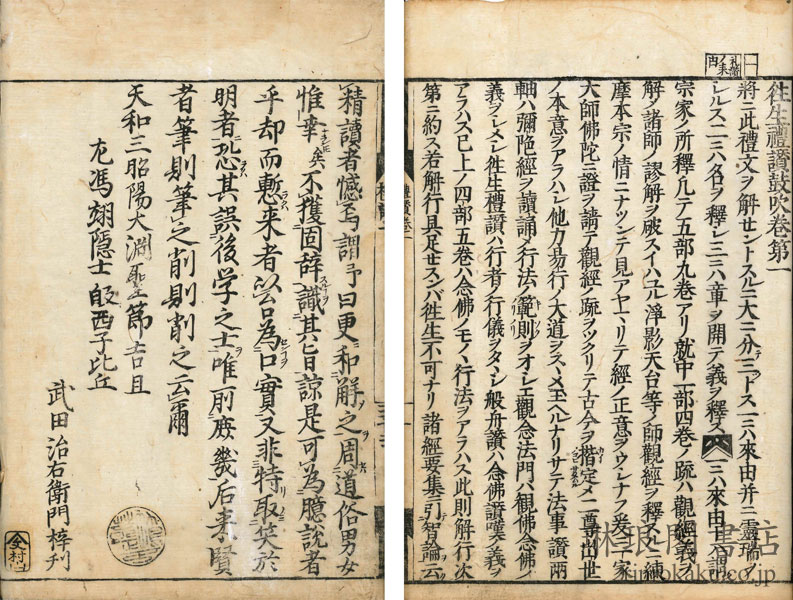 往生禮讃鼓吹卷第一
將ニ此禮文ヲ解セントスルニ大ニ分ニ三トス一ニハ來由并ニ靈瑞ヲ
シルス二ニハ名ヲ釋シ三ニハ章ヲ開テ義ヲ釋ス 一ニハ來由ト謂
宗家ノ所釋凡テ五部九卷アリ就中一部四卷ノ疏ハ觀經ノ義ヲ
解メ諸師ノ謬解ヲ破スイハユル淨影天台等ノ師觀經ヲ釋スルニ
摩本宗ノ情ニナツンテ見アヤマリテ經ノ正意ヲウシナフ
大師佛陀ニ證ヲ請テ觀經ノ疏ヲツクリテ古今ヲ揩定メ二尊出世
ノ本意ヲアラハシ他力易行ノ大道ヲスヽメ玉ヘルナリサテ法事讃兩
軸ハ彌陀經ヲ讀誦メ行法ノ範則ヲオシエ觀念法門ハ觀佛念佛ノ
義ヲシメシ往生禮讃ハ行者ノ行儀ヲタヽシ般舟讃ハ念佛讃嘆ノ義ヲ
アラハス已上ノ四部五卷ハ念佛ノモノヽ行法ヲアラハス此則解行次
第ニ約ス若解行具足セスンバ往生不可ナリ諸經要集ニ引智論云
精讀者憾焉謂予曰更和解之周道俗男女
惟幸矣不獲固辞識其旨諒是可為臆説者
乎却而慙来者以吾為口實又非特取笑於
明者恐其誤後学之士唯所庶幾后来賢
者筆則筆之削則削之云爾
天和三昭陽大淵聖節吉旦
尢馮翊隠士 西子比丘
武田治右衛門梓刋